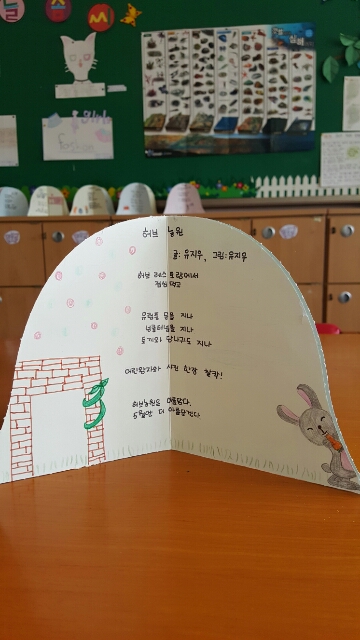 허브 농원
글: 유지우, 그림: 유지우
허브 레스토랑에서
점심 먹고
유럽풍 문을 지나
넝쿨터널을 지나
토끼와 당나귀도 지나
어린왕자와 사진 한장 찰칵!
허브농원도 아름답다.
5월엔 더 아름답겠다